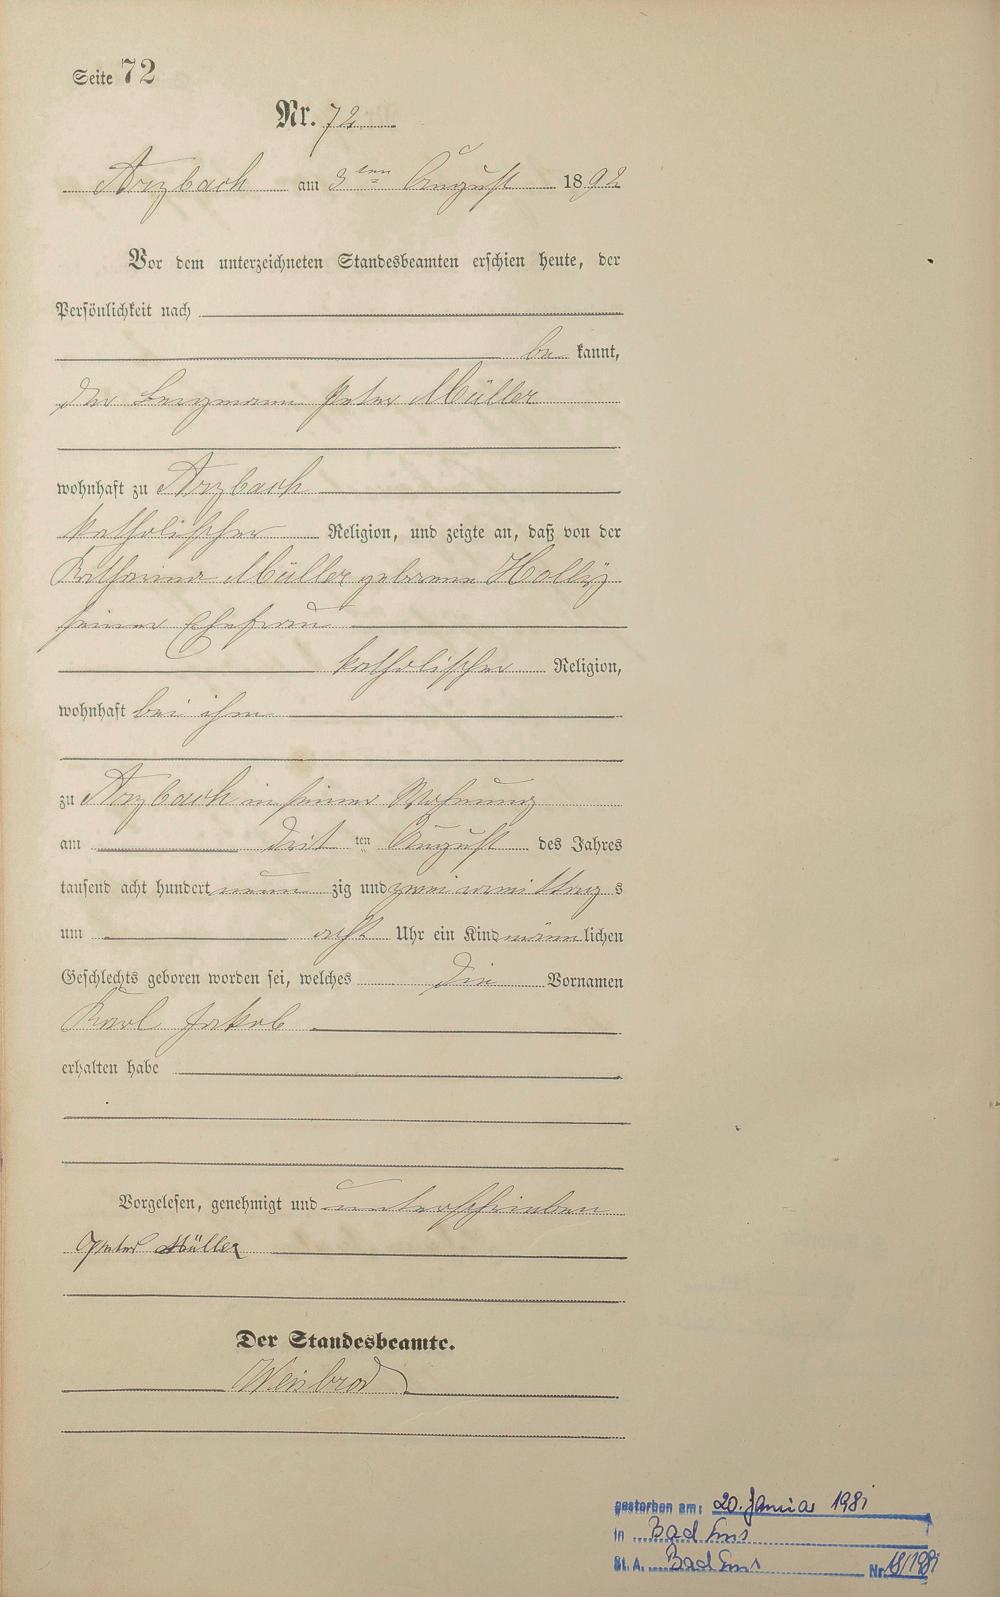 Seite 72
Nr. 72
Arzbach am 3ten August 1892
Vor dem unterzeichneten Standesbeamten erschien heute, der
Persönlichkeit nach
be kannt,
der Bergmann Peter Müller
wohnhaft zu Arzbach
katholischer Religion, und zeigte an, daß von der
Katharina Müller geborene
seiner Ehefrau
katholischer Religion,
wohnhaft bei ihm
zu Arzbach in seiner Wohnung
am drit ten August des Jahres
tausend acht hundert neun zig und zwei vormittag s
um acht Uhr ein Kind männlichen
Geschlechts geboren worden sei, welches die Vornamen
Karl Jakob
erhalten habe
Vorgelesen, genehmigt und unterschrieben
Peter Müller
Der Standesbeamte.
Weisbrod
gestorben am: 20. Januar 1981
in Bad Ems
St. A. Bad Ems Nr. 18/1981